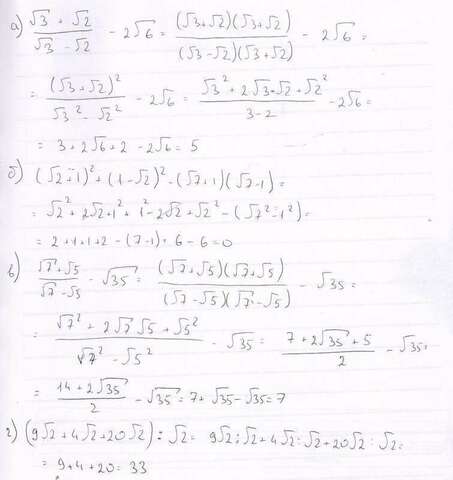 а) (√3 + √2)/(√3 - √2) - 2√6 = ((√3+√2)(√3+√2))/((√3-√2)(√3+√2)) - 2√6 =
= (√3+√2)²/(√3² - √2²) - 2√6 = (√3² + 2√3·√2 + √2²)/(3-2) - 2√6 =
= 3 + 2√6 + 2 - 2√6 = 5
б) (√2+1)² + (1-√2)² - (√7+1)(√7-1) =
= √2² + 2√2 + 1² + 1² - 2√2 + √2² - (√7² - 1²) =
= 2+1+1+2 - (7-1) = 6-6 = 0
в) (√7+√5)/(√7-√5) - √35 = ((√7+√5)(√7+√5))/((√7-√5)(√7-√5)) - √35 =
= (√7² + 2√7 √5 + √5²)/(√7² - √5²) - √35 = (7+2√35+5)/2 - √35 =
= (14+2√35)/2 - √35 = 7+√35-√35 = 7
г) (9√2+4√2+20√2) : √2 = 9√2:√2+4√2:√2+20√2:√2 =
= 9+4+20 = 33